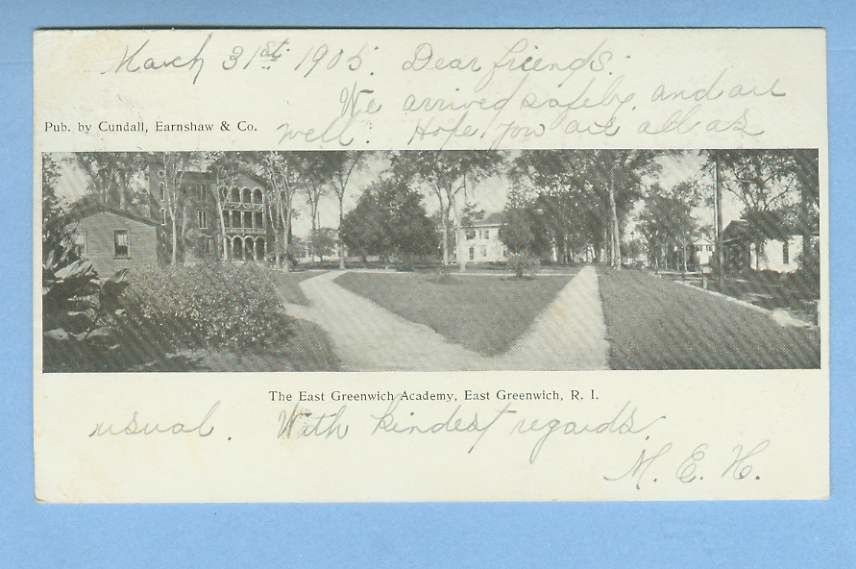 March 31st. 1905. Dear friends:
We arrived safely, and are
Pub. by Cundall, Earnshaw & Co.
well. Hope you are all as
The East Greenwich Academy, East Greenwich, R. I.
usual. With kindest regards.
M. E. H.